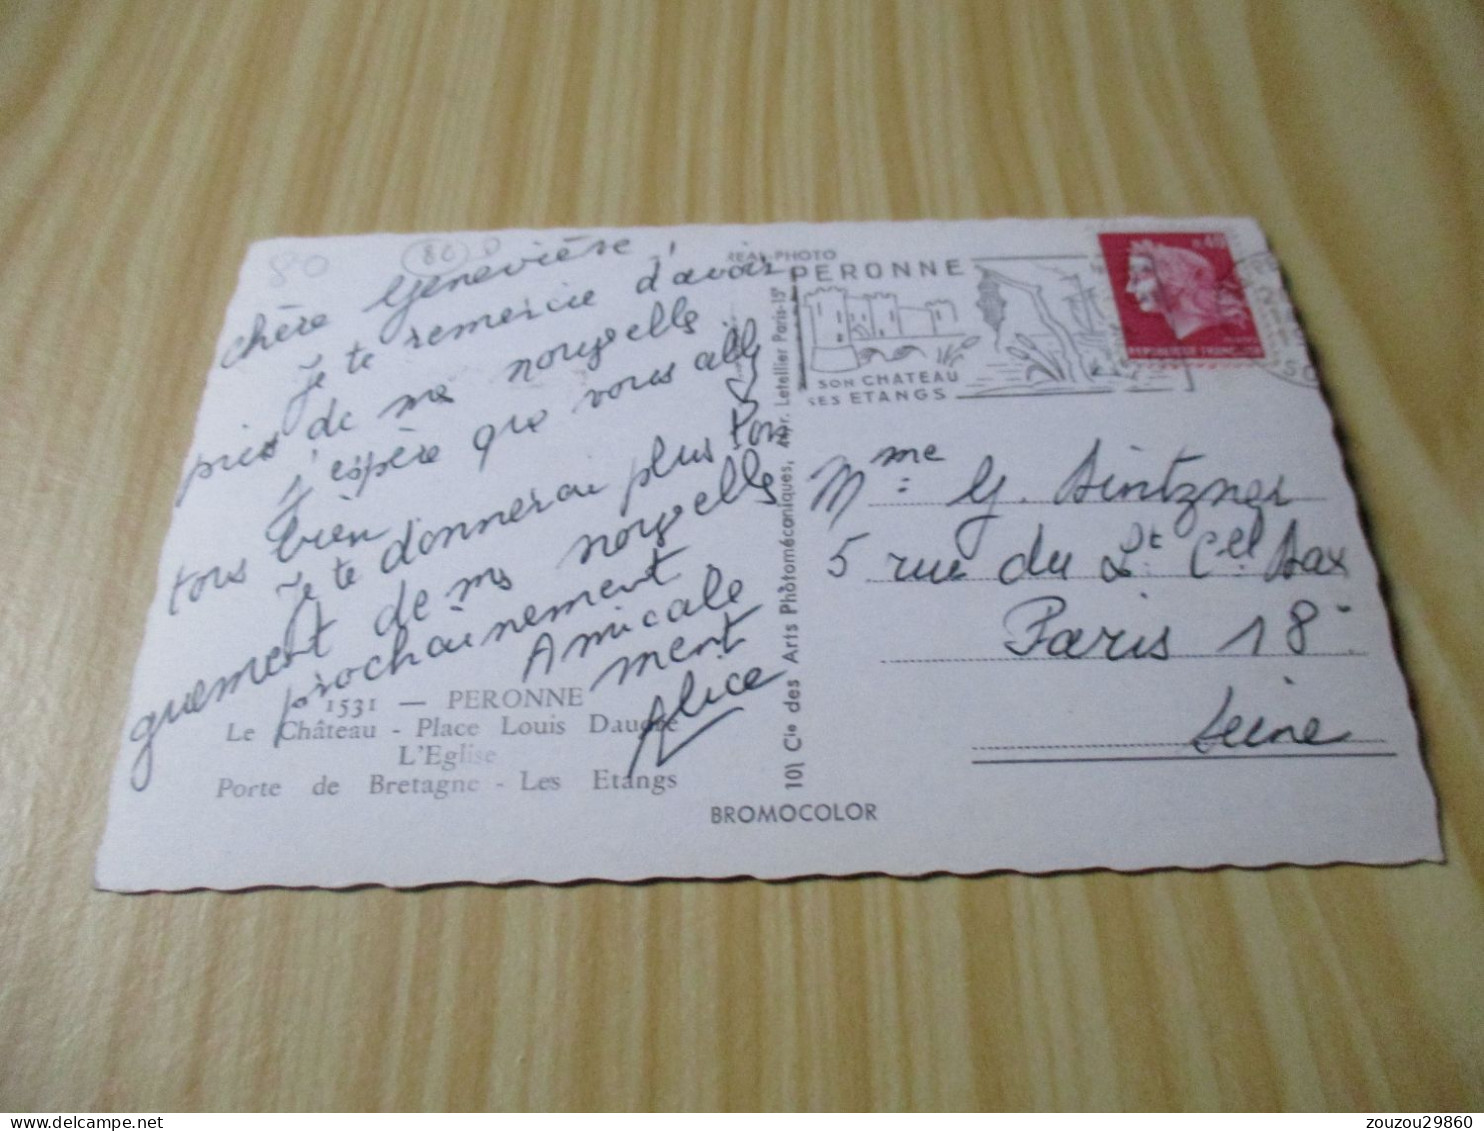 80
80
chère Geneviève,
Je te remercie d'avoir
pris de me nouvelle
j'espère que vous all
tous bien
Je te donnerau plus lon
guement de ms nouvelle
prochainement
Amicale
ment
Alice
1531 — PERONNE
Le Château - Place Louis Daudré
L'Eglise
Porte de Bretagne - Les Etangs
REAL-PHOTO
101 Cie des Arts Photomécaniques, Letellier Paris-15e
BROMOCOLOR
PERONNE
SON CHATEAU
SES ETANGS
0,40
REPUBLIQUE FRANÇAISE
Mme: G. Sintzner
5 rue du Lt Cel Dax
Paris 18e
Seine
zouzou29860